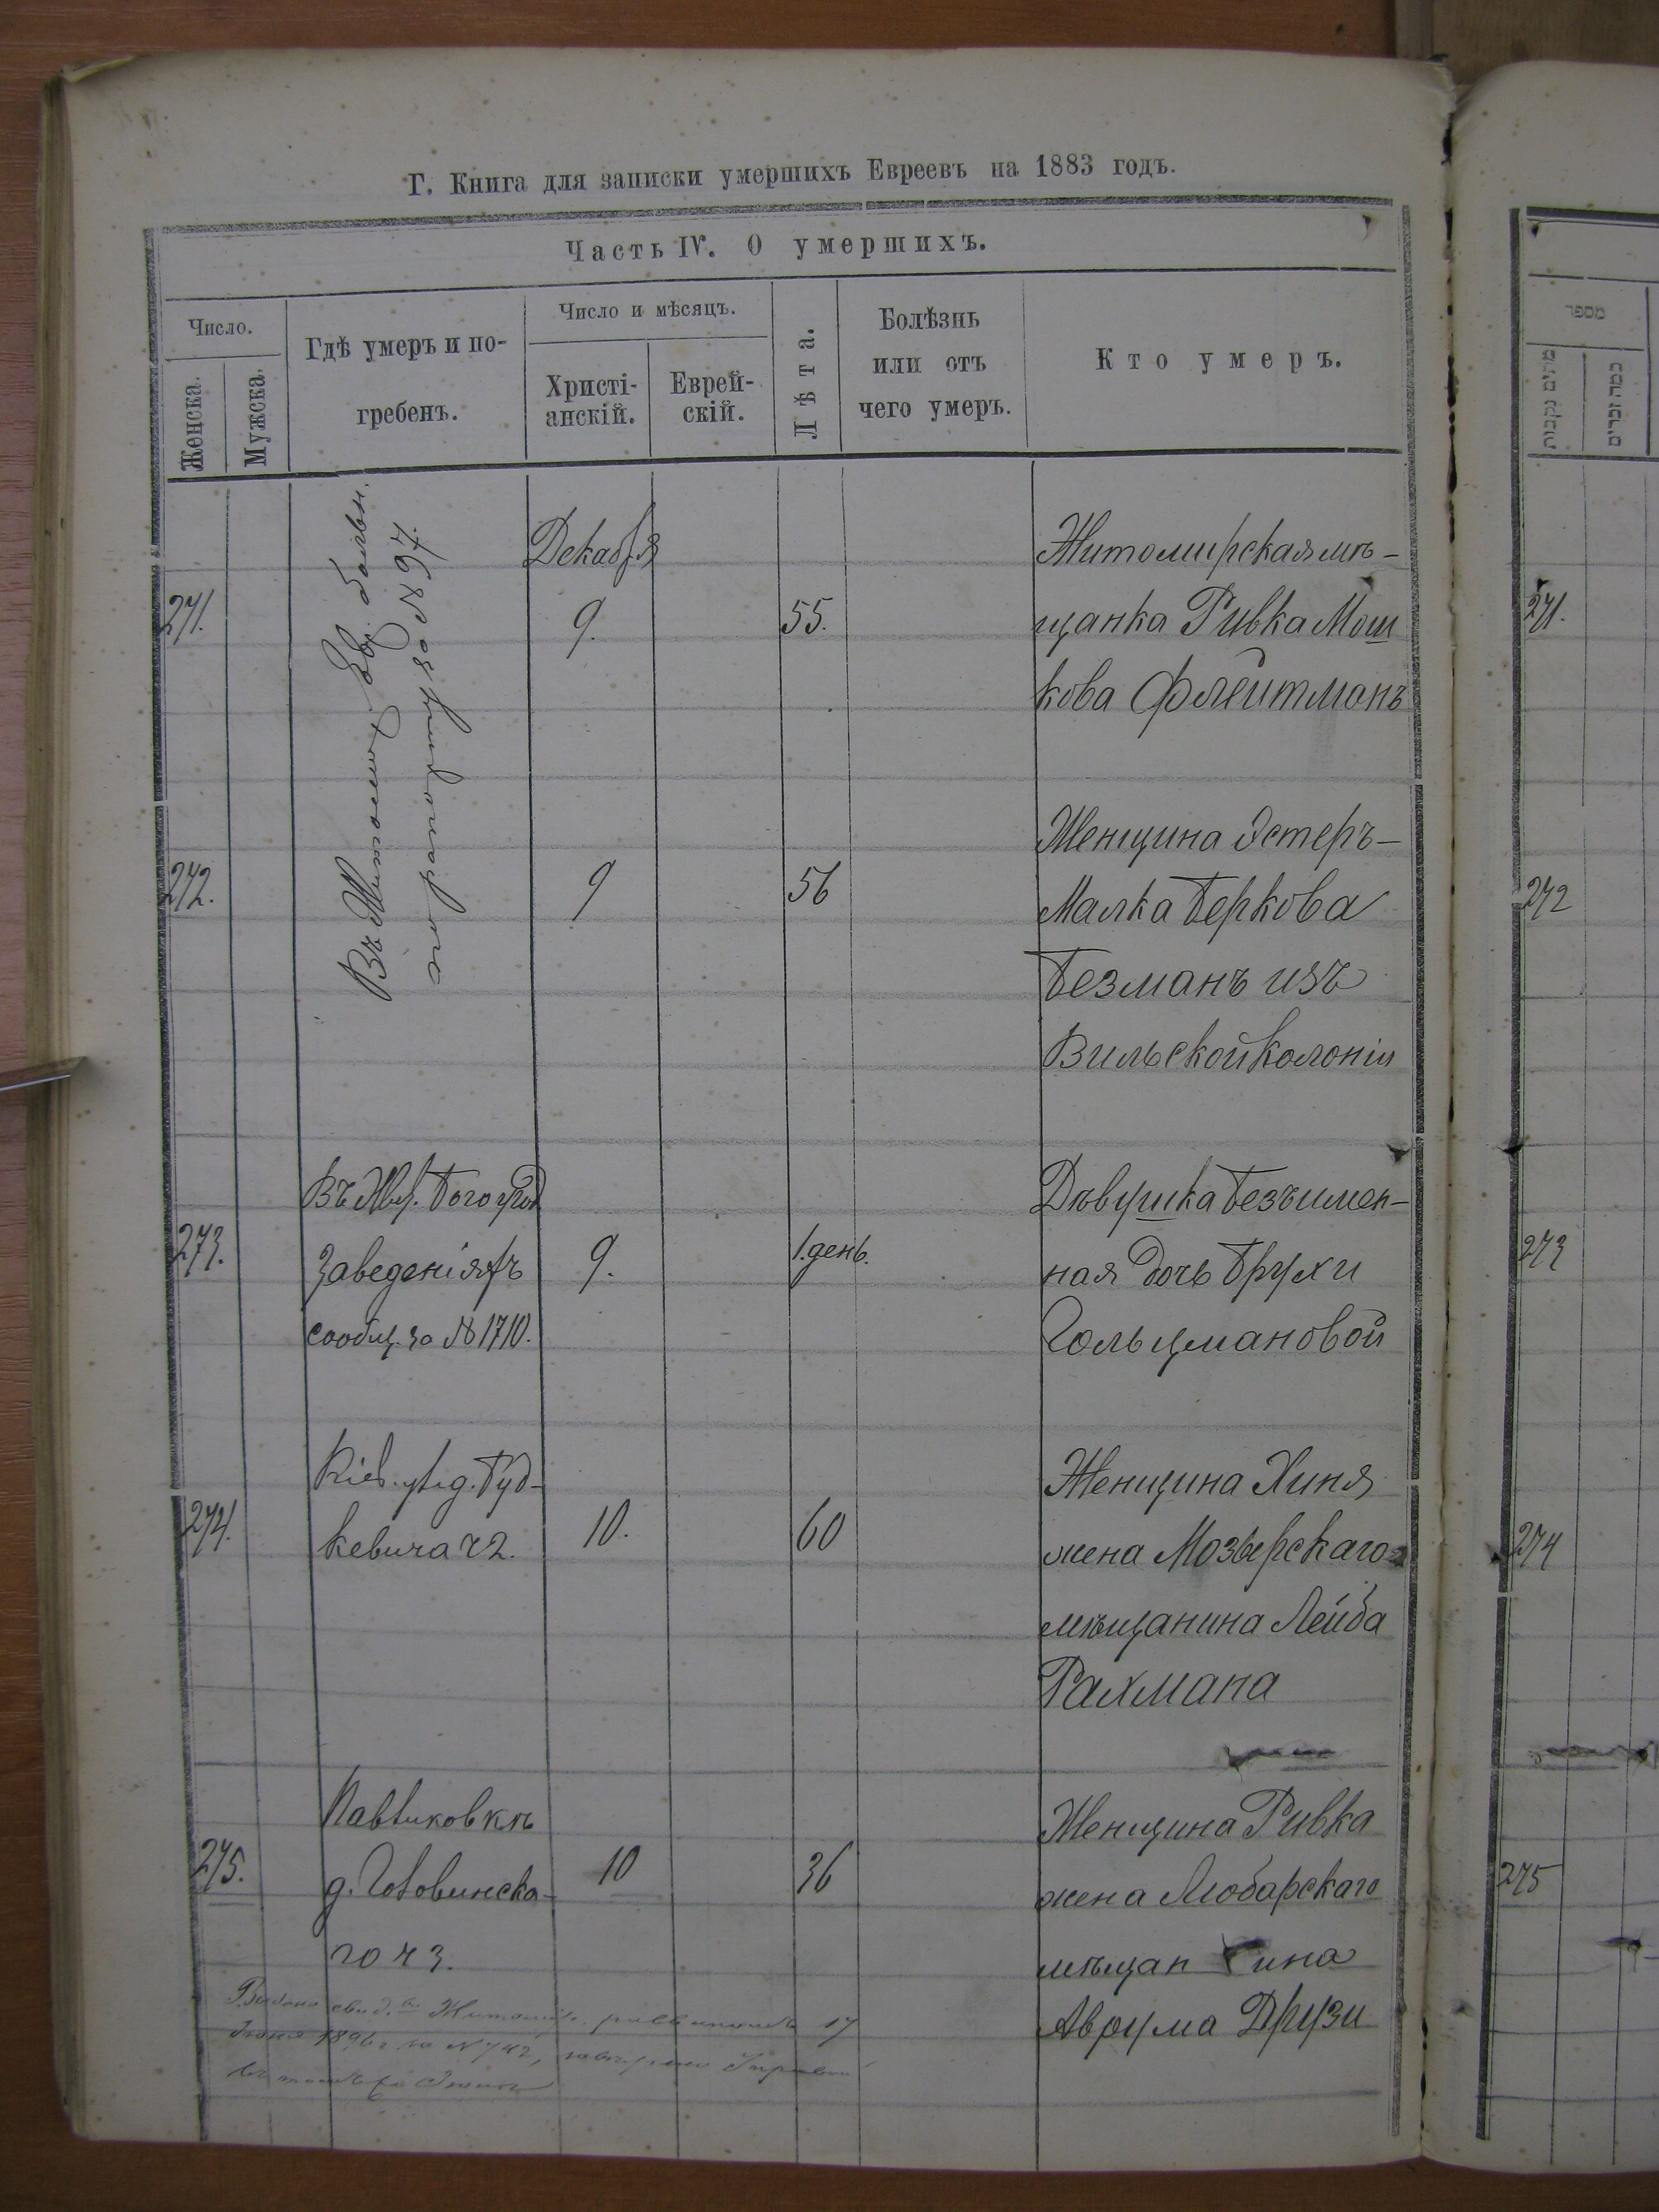 Г. Книга для записки умершихъ Евреевъ на 1883 годъ.
Часть IV. О умершихъ.
Число.
Женска.
Мужска.
Гдѣ умеръ и по-
гребенъ.
Число и мѣсяцъ.
Христі-
анскій.
Еврей-
скій.
Лѣта.
Болѣзнь
или отъ
чего умеръ.
Кто умеръ.
271.
Въ Житомир. Евр. больн.
за № 97.
Декабря
9.
55.
Житомирская мѣ-
щанка Ривка Мош
кова Флейтманъ
272.
9
56
Женщина Эстеръ-
Малка Беркова
Безманъ изъ
Вильской колоніи
273.
Въ Жит. Богоугод
заведеніяхъ
сообщ. за № 1710.
9.
1. день.
Дѣвушка безъимен-
ная дочь Брухи
Гольцмановой
274.
Кіев. ул. д. Буд-
кевича ч 2.
10.
60
Женщина Хиня
жена Мозырскаго
мѣщанина Лейба
Рахмана
275.
Павликовкѣ
д. Головинска-
го ч 3.
10
36
Женщина Ривка
жена Любарскаго
мѣщан ина
Аврума Друзи
17
1896 г. за № 742,
מספר
מתים נקבות
כמה זכרים
271.
272
273
274
275